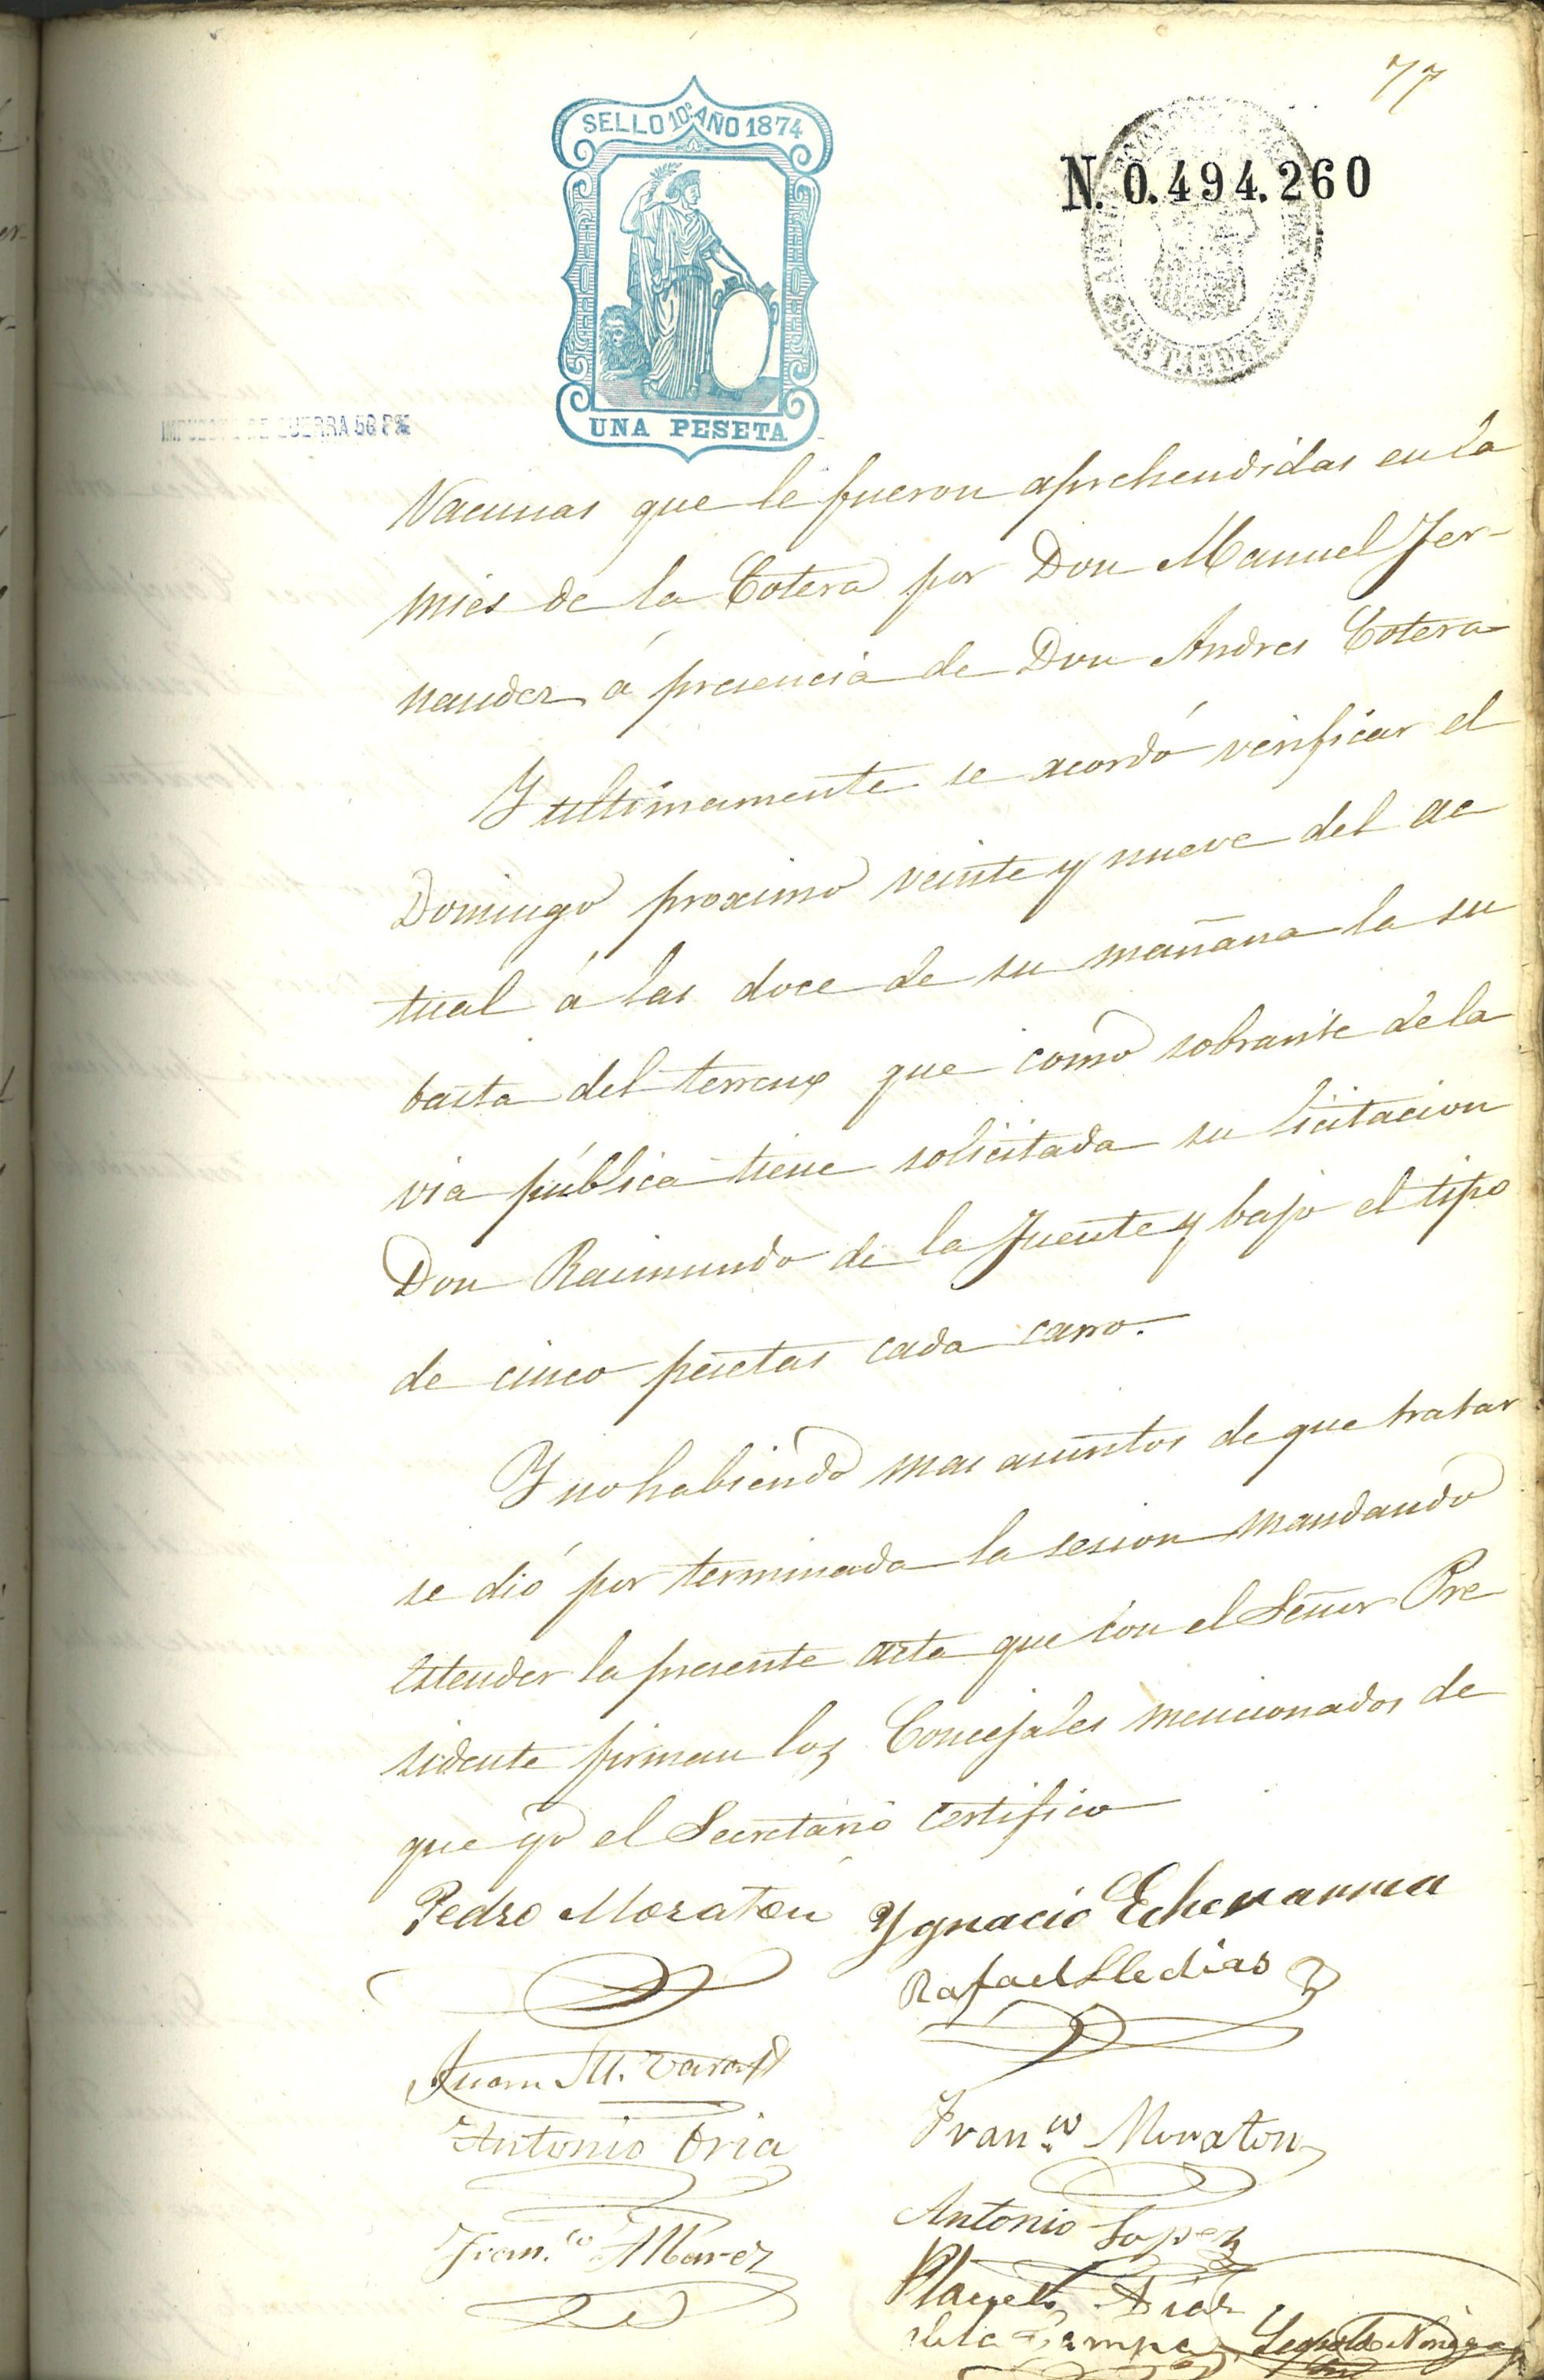 77
SELLO 10º AÑO 1874
N. 0.494.260
SANTANDER
UNA PESETA
IMPUESTO DE GUERRA 50 P%
Vacunas que le fueron aprehendidas en la
mies de la Cotera por Don Manuel Fer-
nandez á presencia de Don Andres Cotera
Y ultimamente se acordó verificar el
Domingo proximo veinte y nueve del ac
tual á las doce de su mañana la su
basta del terreno que como sobrante de la
via pública tiene solicitada su licitacion
Don Raimundo de la Fuente y bajo el tipo
de cinco pesetas cada carro.
Y no habiendo mas asuntos de que tratar
se dió por terminada la sesion mandando
estender la presente acta que con el Señor Pre
sidente firman los Concejales mencionados de
que yo el Secretario certifico
Pedro Moraton Ygnacio Echevarria
Rafael Lledias
Juan M. Vara
Antonio Oria Fran.co Moraton
Antonio Lopez
Fran.co Albarez
Diaz
de la Campa Leopoldo Noriega